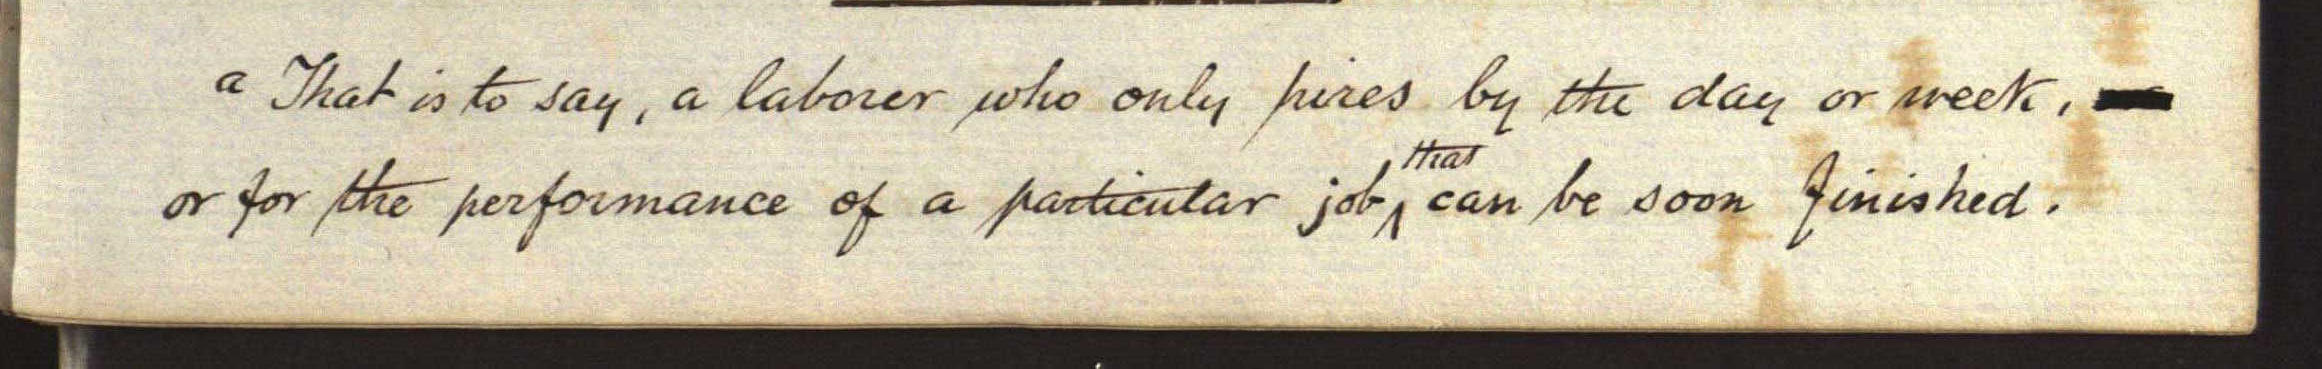 a That is to say, a laborer who only hires by the day or week,
or for the performance of a particular job, that can be soon finished.